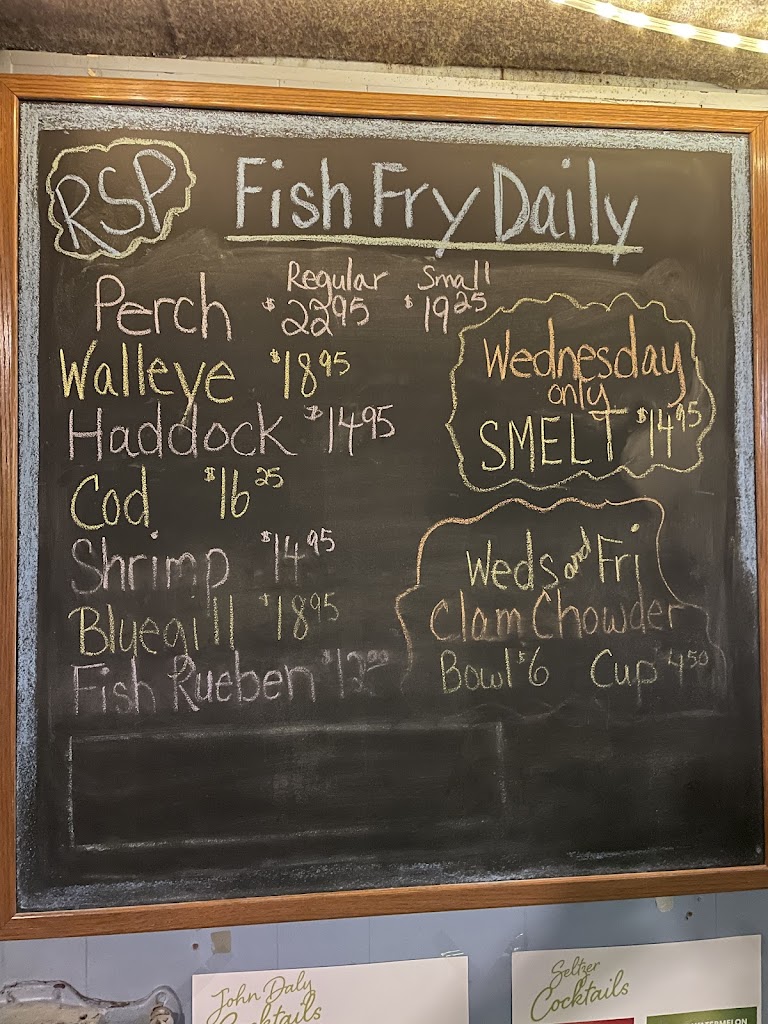 RSP Fish Fry Daily
Regular Small
Perch $22.95 $19.25
Walleye $18.95
Haddock $14.95
Cod $16.25
Shrimp $14.95
Bluegill $18.95
Fish Rueben $12.00
Wednesday
only
SMELT $14.95
Weds and Fri
Clam Chowder
Bowl $6 Cup $4.50
John Daly
Cocktails
Seltzer
Cocktails
WATERMELON